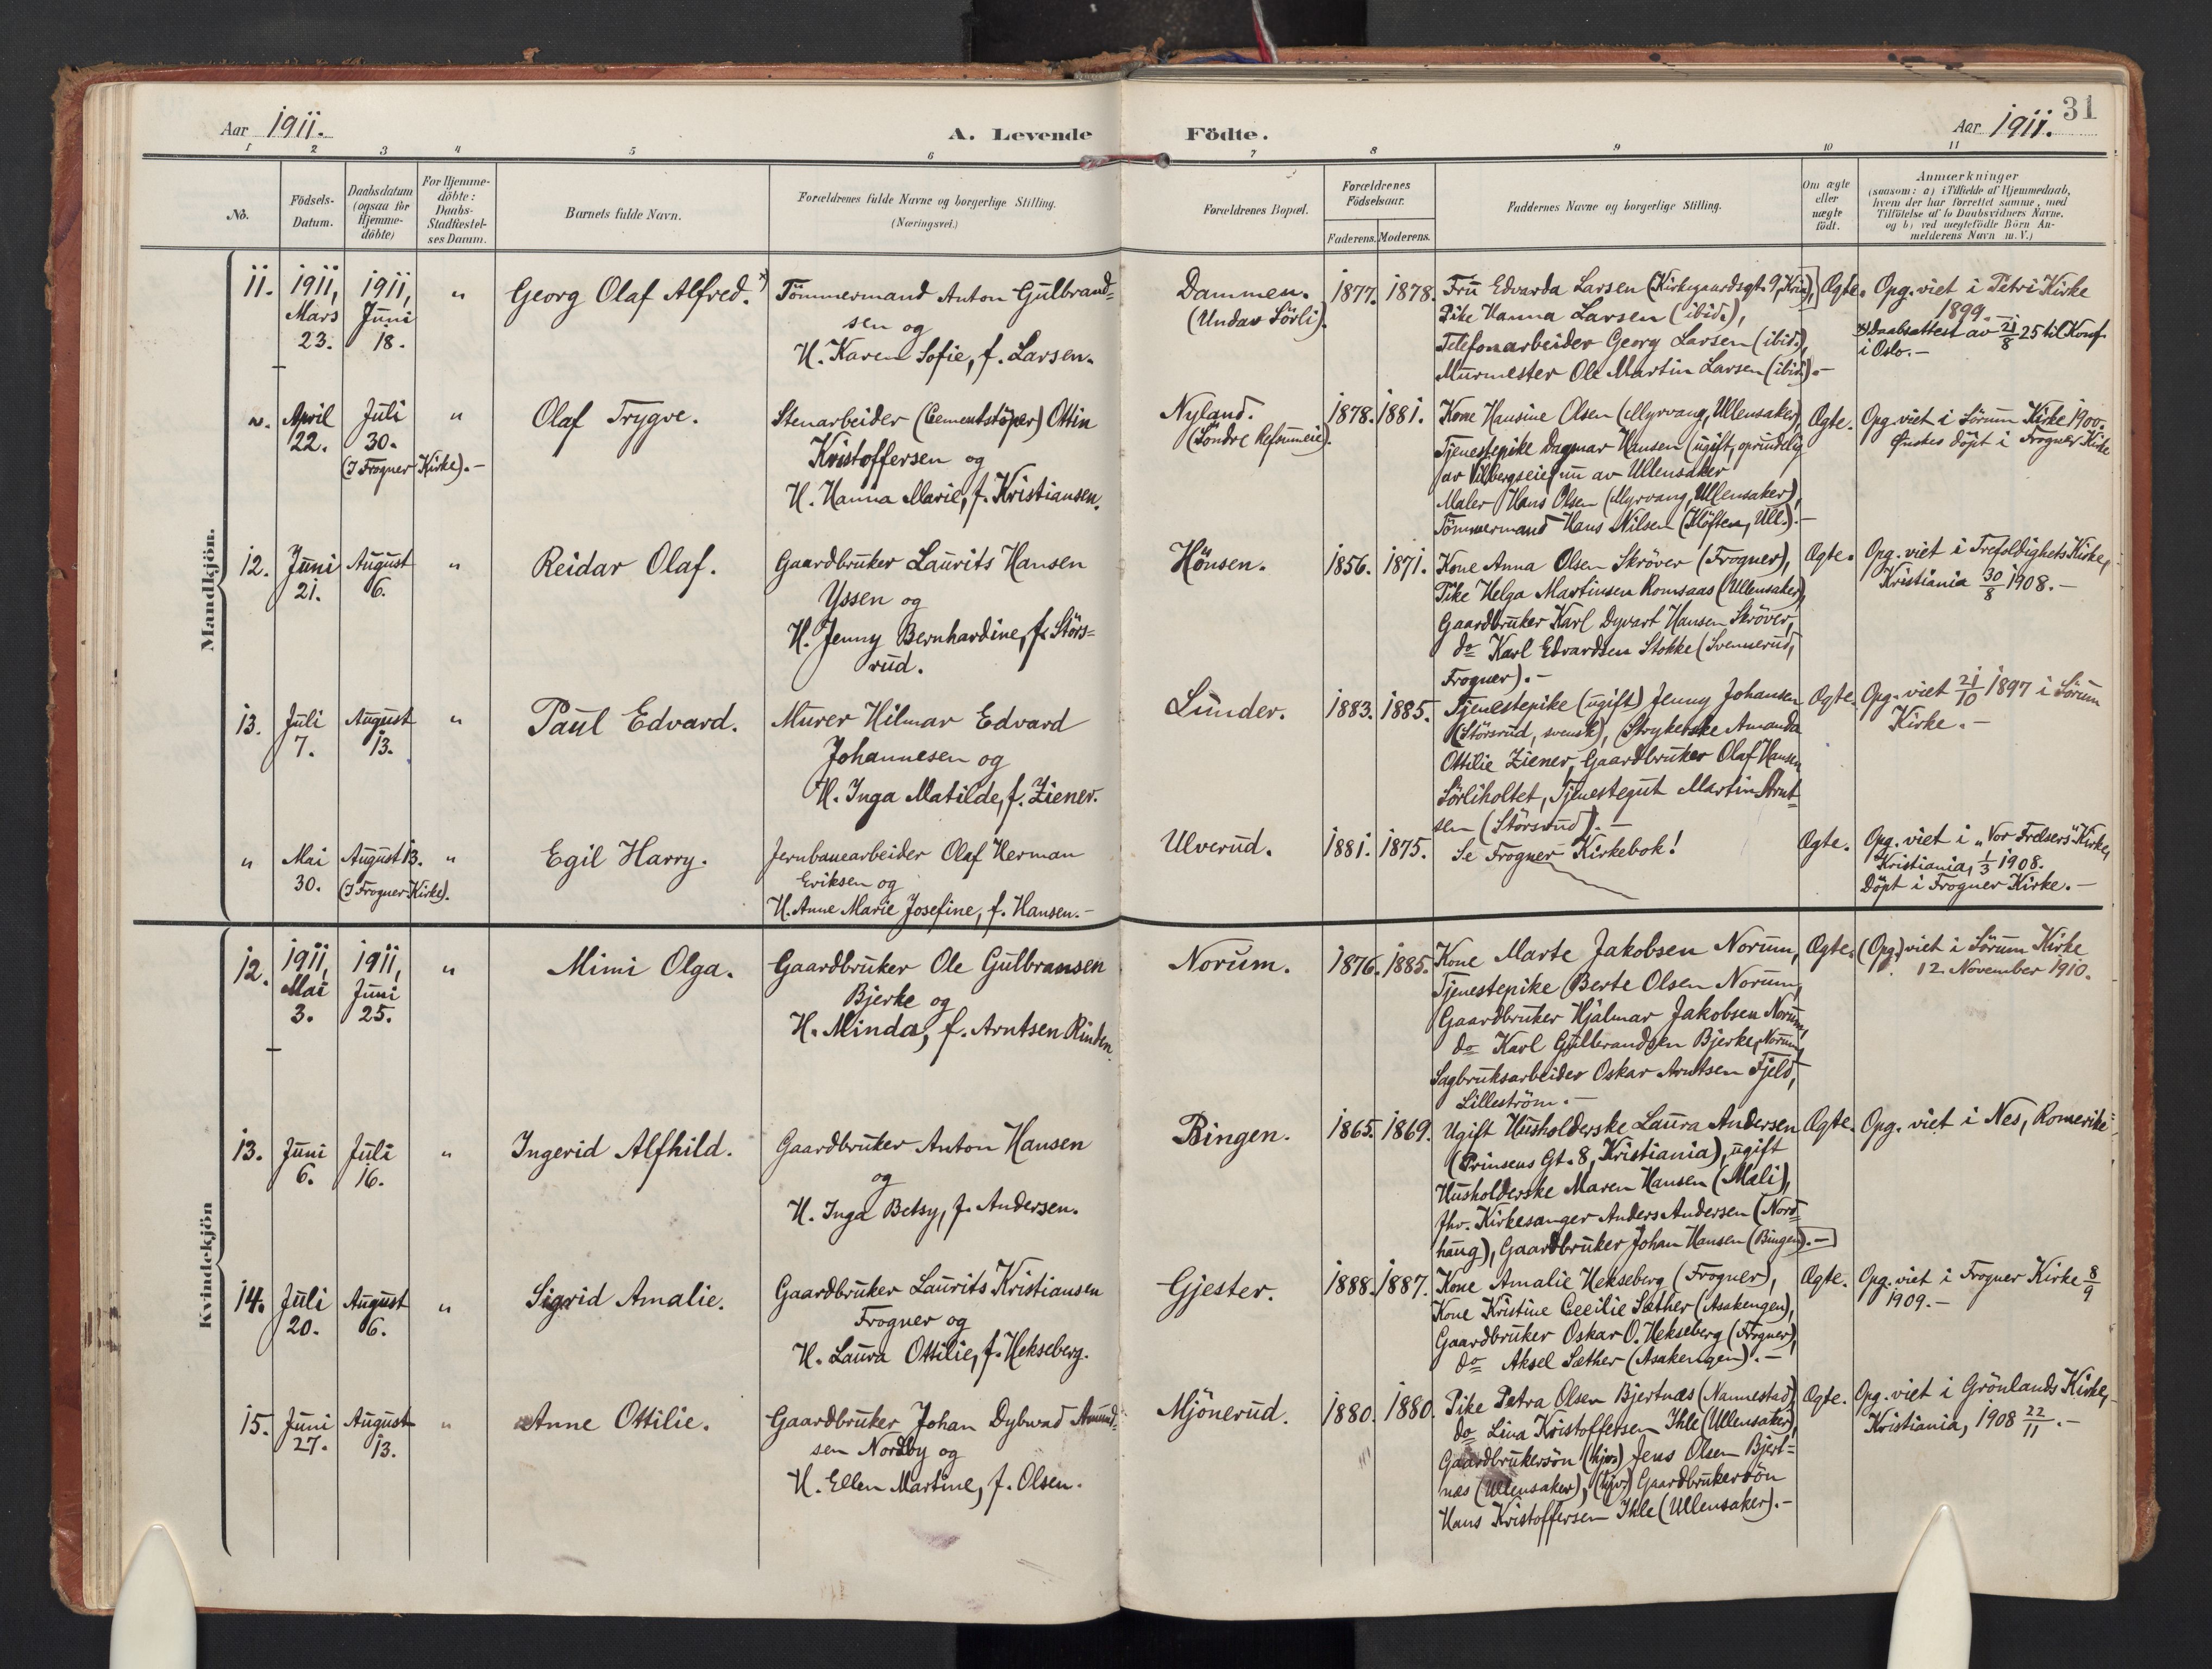 31
Aar 1911.
A. Levende Födte.
Aar 1911.
1 2 3 4 5 6 7 8 9 10 11
No.
Födsels-
Datum.
Daabsdatum
(ogsaa for
Hjemme-
döbte)
For Hjemme-
döbte:
Daabs-
Stadfæstel-
ses Datum.
Barnets fulde Navn.
Forældrenes fulde Navne og borgerlige Stilling.
(Næringsvei.)
Forældrenes Bopæl.
Forældrenes
Födselsaar.
Faderens.
Moderens.
Faddernes Navne og borgerlige Stilling.
Om ægte
eller
uægte
födt.
Anmærkninger
(saasom: a) i Tilfælde af Hjemmedaab,
hvem der har forrettet samme, med
Tilföielse af to Daabsvidners Navne.
og b) ved uægtefödte Börn An-
melderens Navn m. V.)
Mandkjön.
11.
1911,
Mars
23.
1911,
Juni
18.
"
Georg Olaf Alfred. *)
Tömmermand Anton Gulbrand=
sen og
H. Karen Sofie, f. Larsen.
Dammen.
(Undar Sörli).
1877.
1878.
Fru Edvarda Larsen (Kirkegaardsgt. 9, Kria),
Pike Hanna Larsen (ibid.),
Telefonarbeider Georg Larsen (ibid.),
Murmester Ole Martin Larsen (ibid.).-
Ægte.
Opg. viet i Petri Kirke
1899.-
*) Daabsattest av 21/8 25 til Konf.
i Oslo.-
April
22.
Juli
30.
(I Frogner Kirke).-
"
Olaf Trygve.
Stenarbeider (Cementstöper) Ottin
Kristoffersen og
H. Hanna Marie, f. Kristiansen.
Nyland.
(Söndre Refsumeie).
1878.
1881.
Kone Hansine Olsen (Myrvang, Ullensaker),
Tjenestepike Dagmar Hansen (ugift, oprindelig
av Vilbergseie) nu av Ullensaker
Maler Hans Olsen (Myrvang, Ullensaker),
Tömmermand Hans Nilsen (Klöften, Ull.).-
Ægte.
Opg. viet i Sörum Kirke 1900.
Önskes döpt i Frogner Kirke
12.
Juni
21.
August
6.
"
Reidar Olaf.
Gaardbruker Laurits Hansen
Yssen og
H. Jenny Bernhardine, f. Störs=
rud.
Hönsen.
1856.
1871.
Kone Anna Olsen Skröver (Frogner),
Pike Helga Martinsen Romsaas (Ullensaker),
Gaardbruker Karl Dyvart Hansen Skröver,
do Karl Edvardsen Stokke (Svennerud,
Frogner).-
Ægte.
Opg. viet i Trefoldighets Kirke,
Kristiania 30/8 1908.-
13.
Juli
7.
August
13.
"
Paul Edvard.
Murer Hilmar Edvard
Johannesen og
H. Inga Matilde, f. Ziener.
Lunder.
1883.
1885.
Tjenestepike (ugift) Jenny Johansen
(Störsrud, svensk), Strykerske Amanda
Ottilie Ziener, Gaardbruker Olaf Hansen
Sörliholtet, Tjenestegut Martin Arnt=
sen (Störsrud).-
Ægte.
Opg. viet 21/10 1897 i Sörum
Kirke.-
"
Mai
30.
August 13.
(I Frogner Kirke).
"
Egil Harry.
Jernbanearbeider Olaf Herman
Eriksen og
H. Anne Marie Josefine, f. Hansen.-
Ulverud.
1881.
1875.
Se Frogner Kirkebok!
Ægte.
Opg. viet i „Vor Frelsers" Kirke,
Kristiania, 1/3 1908.
Döpt i Frogner Kirke.-
Kvindekjön
12.
1911,
Mai
3.
1911,
Juni
25.
"
Mimi Olga.
Gaardbruker Ole Gulbransen
Bjerke og
H. Minda, f. Arntsen Rinden.
Norum.
1876.
1885.
Kone Marte Jakobsen Norum,
Tjenestepike Berte Olsen Norum,
Gaardbruker Hjalmar Jakobsen Norum,
do Karl Gulbrandsen Bjerke, Norum,
Sagbruksarbeider Oskar Arntsen Fjeld,
Lilleström.-
Ægte.
(Opg.) viet i Sörum Kirke
12. November 1910.
13.
Juni
6.
Juli
16.
"
Ingerid Alfhild.
Gaardbruker Anton Hansen
og
H. Inga Betsy, f. Andersen.
Bingen.
1865.
1869.
Ugift Husholderske Laura Andersen
(Prinsens Gt. 8, Kristiania), ugift
Husholderske Maren Hansen (Mæli),
fhv. Kirkesanger Anders Andersen (Nord=
haug), Gaardbruker Johan Hansen (Bingen).-
Ægte.
Opg. viet i Nes, Romerike
14.
Juli
20.
August
6.
"
Sigrid Amalie.
Gaardbruker Laurits Kristiansen
Frogner og
H. Laura Ottilie, f. Hekseberg.
Gjester.
1888.
1887.
Kone Amalie Hekseberg (Frogner),
Kone Kristine Cecilie Sæther (Asakengen),
Gaardbruker Oskar O. Hekseberg (Frogner),
do Aksel Sæther (Asakengen).-
Ægte.
Opg. viet i Frogner Kirke 8/9
1909.-
15.
Juni
27.
August
13.
"
Anne Ottilie.
Gaardbruker Johan Dybwad Amund=
sen Nordby og
H. Ellen Martine, f. Olsen.
Mjönerud.
1880.
1880.
Pike Petra Olsen Bjertnæs (Nannestad),
do Lina Kristoffersen Ihle (Ullensaker),
Gaardbrukersön (hjv.) Jens Olsen Bjert=
næs (Ullensaker), (hjv.) Gaardbrukersön
Hans Kristoffersen Ihle (Ullensaker).-
Ægte.
Opg. viet i Grönlands Kirke,
Kristiania, 1908 22/11.-